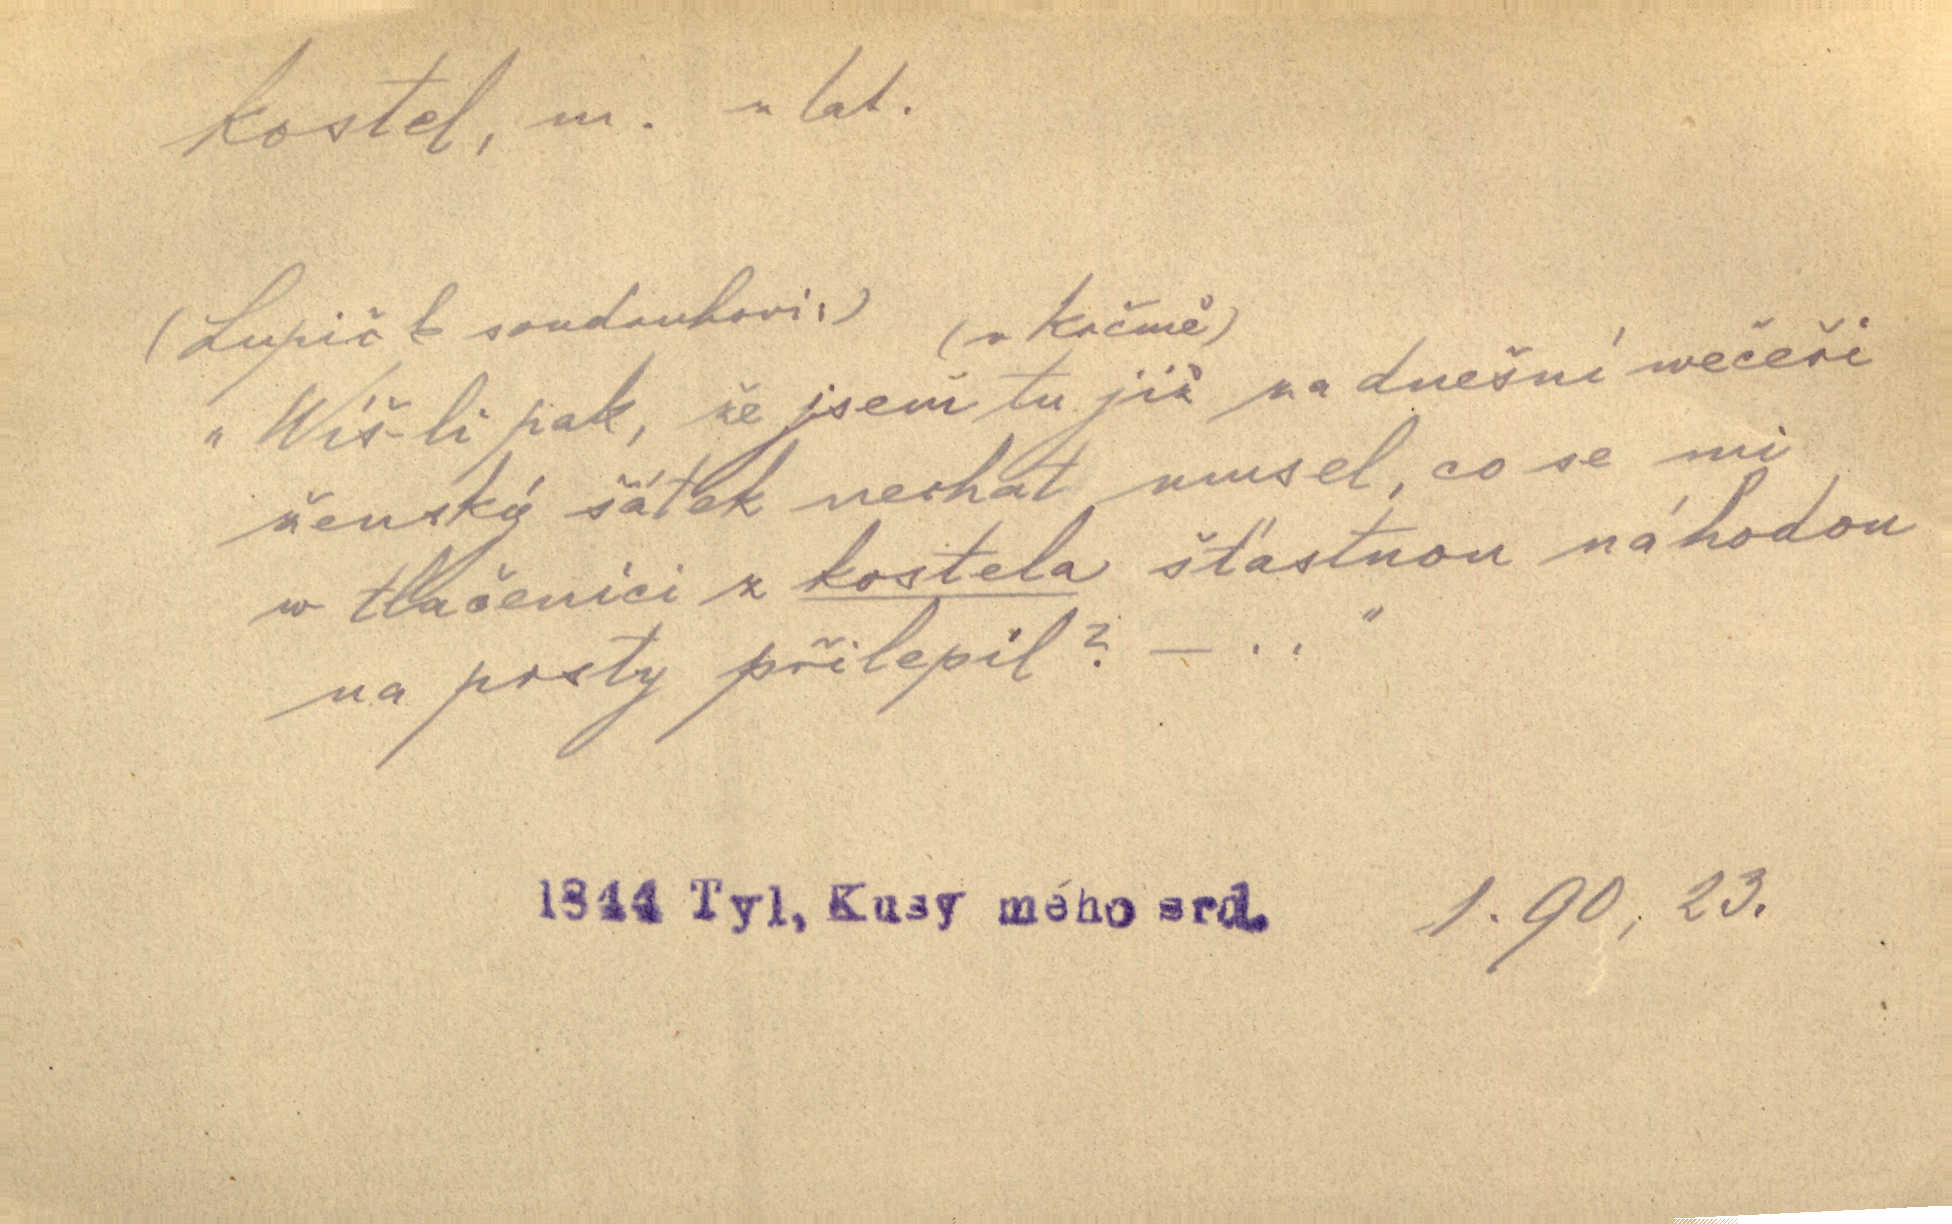 kostel, m. z lat.
(Lupič k soudruhovi:) (v krčmě)
„Wíš-li pak, že jsem tu již za dnešní wečeři
ženský šátek nechat musel, co se mi
w tlačenici z kostela šťastnou náhodou
na prsty přilepil? — .."
1844 Tyl, Kusy mého srd. 1. 90, 23.